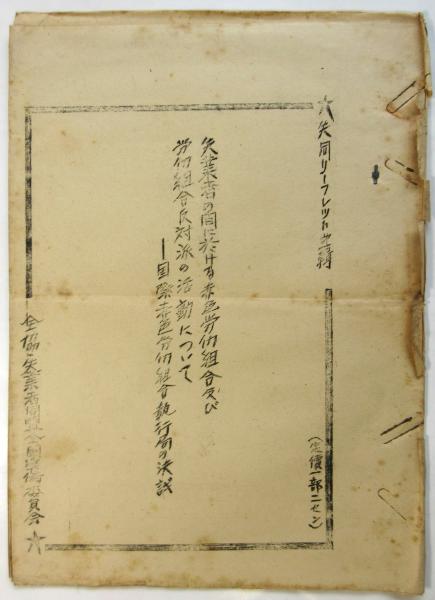 失同リーフレット第一輯
(定價一部二セン)
失業者の間に於ける赤色労仂組合及び
労仂組合反対派の活動について
―国際赤色労仂組合執行局の決議
全協・失業者同盟全国準備委員会